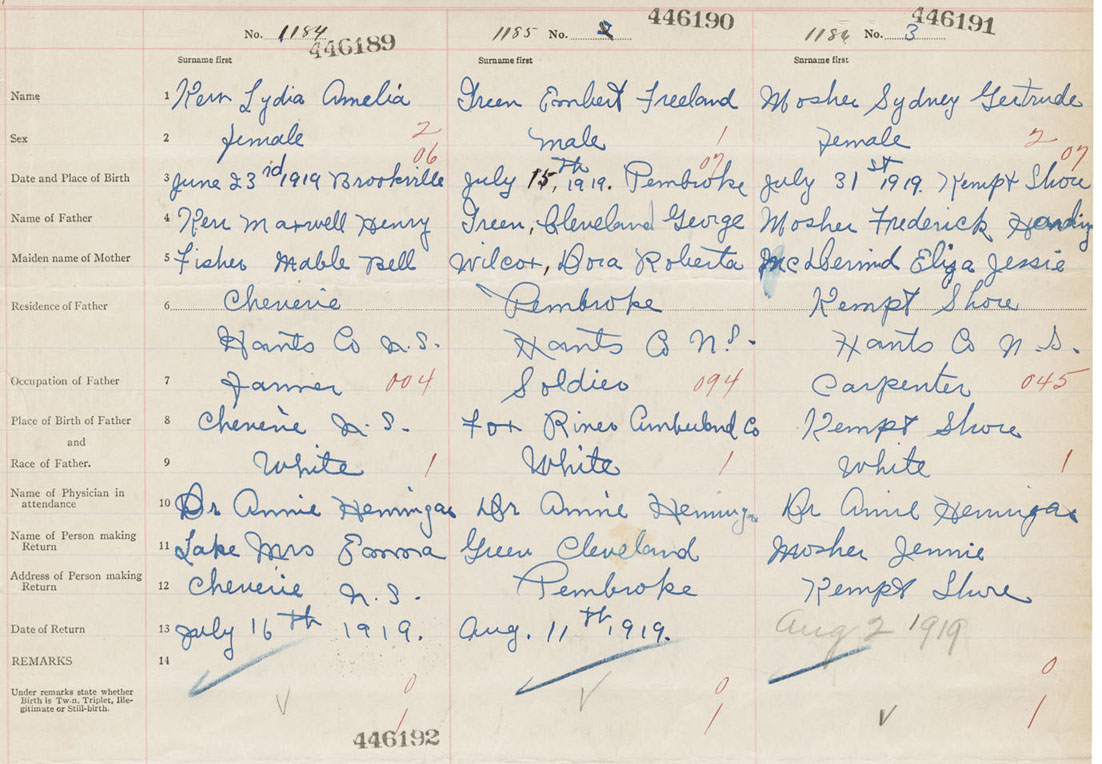 No. 1184 446189 1185 No. 2 446190 1186 No. 3 446191
Surname first Surname first Surname first
Name 1 Kerr Lydia Amelia Green Embert Freeland Mosher Sydney Gertrude
Sex 2 female 2 male 1 Female 2
06 07 07
Date and Place of Birth 3 June 23rd 1919 Brookville July 15,th 1919. Pembroke July 31st 1919. Kempt Shore
Name of Father 4 Kerr Maxwell Henry Green, Cleveland George Mosher Frederick Harding
Maiden name of Mother 5 Fisher Mable Bell Wilcox, Dora Roberta McDermid Eliza Jessie
Residence of Father 6 Cheverie Pembroke Kempt Shore
Hants Co N.S. Hants Co N.S. Hants Co N.S.
Occupation of Father 7 Farmer 004 Soldier 094 Carpenter 045
Place of Birth of Father 8 Cheverie N.S. Fox River Cumberland Co Kempt Shore
and
Race of Father. 9 White 1 White 1 White 1
Name of Physician in
attendance 10 Dr Annie Hennigar Dr Annie Dr Annie Hennigar
Name of Person making
Return 11 Lake Mrs Emma Green Cleveland Mosher Jennie
Address of Person making
Return 12 Cheverie N.S. Pembroke Kempt Shore
Date of Return 13 July 16th 1919. Aug. 11th, 1919. Aug 2 1919
REMARKS 14
Under remarks state whether 0 0 0
Birth is Twin, Triplet, Ille-
gitimate or Still-birth. 1 1 1
446192